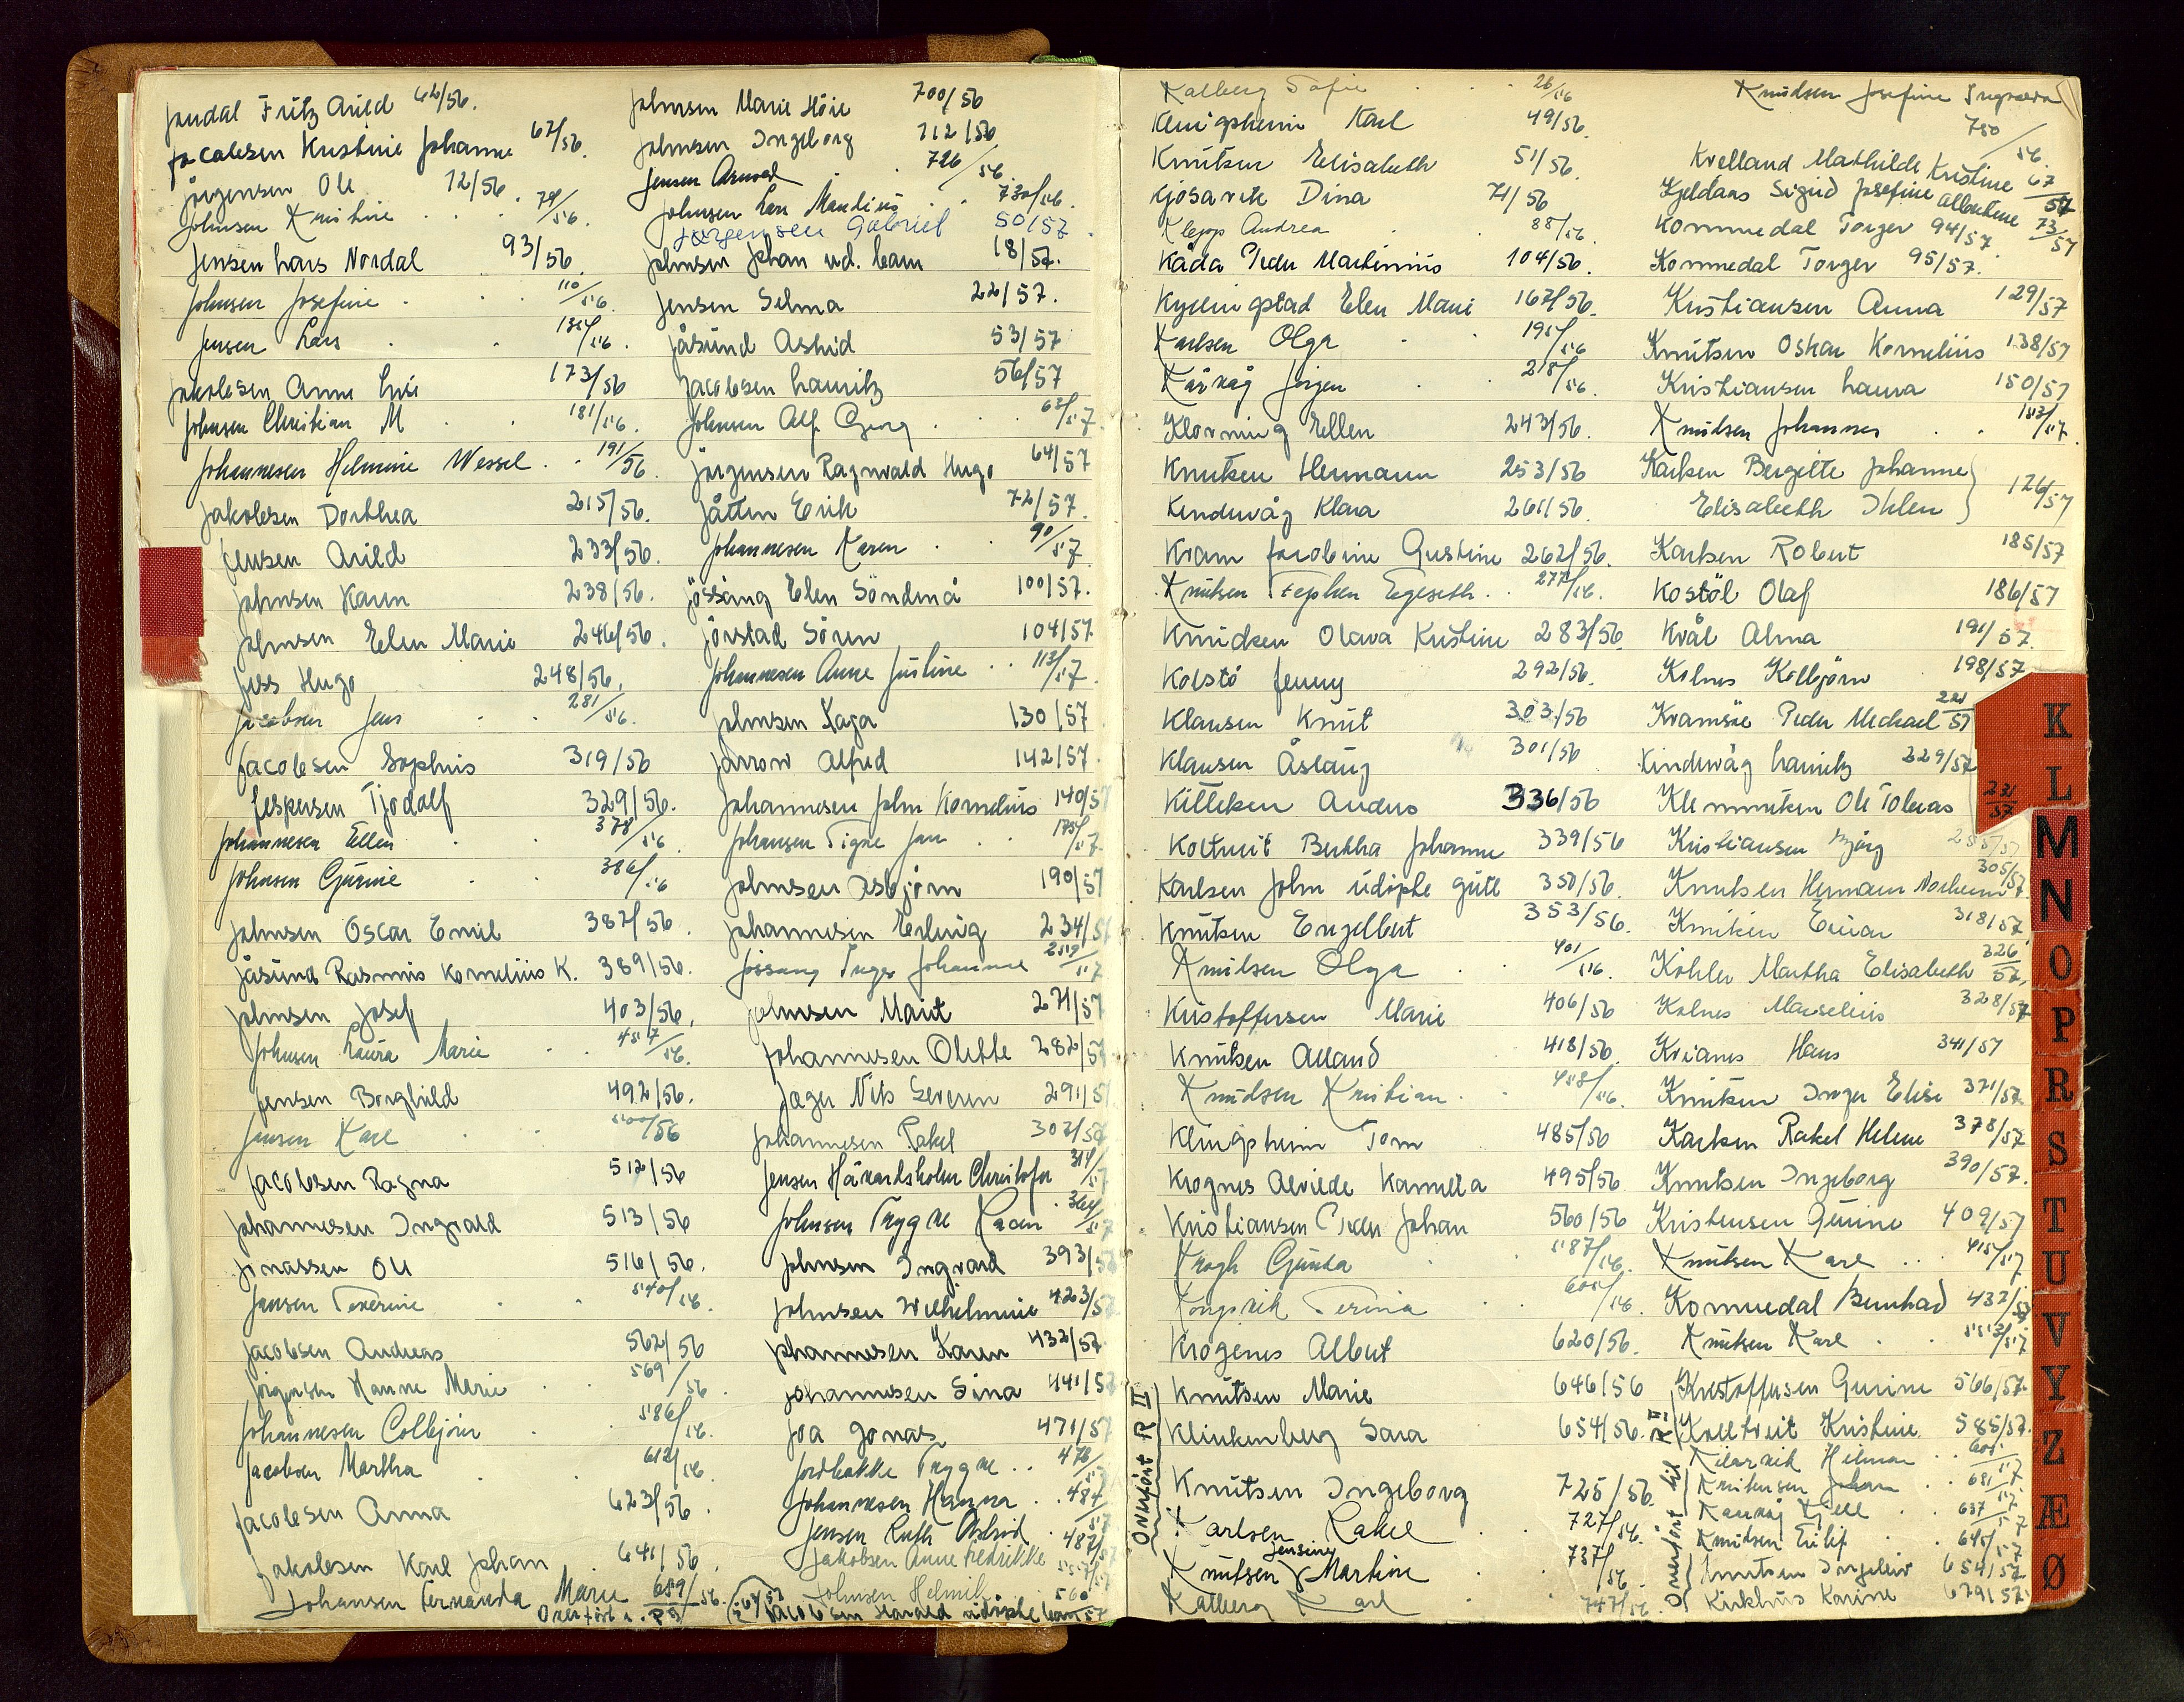 Jondal Fritz Arild 62/56.
Jacobsen Kristine Johanne 67/56.
Jörgensen Ole 72/56.
Johnsen Kristine 79/56.
Jensen Lars Nordal 93/56.
Johnsen Josefine 110/56.
Jensen Lars 135/56.
Jakobsen Anne Lise 173/56
Johnsen Christian M 181/56.
Johannesen Helmine Wessel 191/56.
Jakobsen Dorthea 215/56.
Jensen Arild 233/56.
Johnsen Karen 238/56.
Johnsen Elen Marie 246/56.
Jess Hugo 248/56.
Jacobsen Jens 281/56.
Jacobsen Sophus 319/56
Jespersen Tjodolf 329/56.
Johannesen Ellen 378/56
Johnsen Gurine 386/56
Johnsen Oscar Emil 387/56.
Jåsund Rasmus Kornelius K. 389/56.
Johnsen Josef 403/56.
Johnsen Laura Marie 457/56.
Jensen Borghild 492/56.
Jensen Karl 500/56
Jacobsen Ragna 512/56
Johannesen Ingvald 513/56
Jonassen Ole 516/56.
Jensen Severine 540/56.
Jacobsen Andreas 562/56
Jörgensen Hanne Marie 569/56.
Johannesen Colbjörn 586/56.
Jacobsen Martha 612/56.
Jacobsen Anna 623/56.
Jakobsen Karl Johan 641/56.
Johansen Fernanda Marie 659/56.
Overfört R
Johnsen Marie Höie 700/56
Johnsen Ingeborg 712/56
Jensen Arnold 726/56.
Johnsen Lars Mandius 730/56.
Jørgensen Gabriel 50/57.
Johnsen Johan ud. barn 18/57.
Jensen Selma 22/57.
Jåsund Astrid 53/57
Jacobsen Lauritz 56/57
Johnsen Alf Georg 63/57.
Jørgensen Ragnvald Hugo 64/57
Jåtten Erik 72/57.
Johannesen Karen 90/57
Jössang Elen Söndenå 100/57.
Jörstad Sören 104/57
Johannesen Anne Justine 113/57.
Johnsen Saga 130/57
Jarrow Alfred 142/57.
Johannesen John Kornelius 140/57
Johansen Signe Jan 175/57.
Johnsen Asbjörn 190/57
Johannesen Erling 234/57
Jössang Inger Johanne 259/57
Johnsen Marit 271/57
Johannesen Olette 282/57
Jager Nils Severin 291/57
Johannesen Rakel 307/57
Jensen Håvardsholm Christofer 314/57
Johnsen Trygve Karen 364/57
Johnsen Ingvard 393/57
Johnsen Wilhelmine 423/57
Johannesen Karen 432/57
Johannesen Sina 441/57
Joa Jonas 471/57
Jordbakke Trygve 476/57
Johannesen Hanna 484/57
Jensen Ruth Astrid 487/57
Jakobsen Anne Fredrikke 557/57
Johnsen Helmik 560
Jacobsen Harald udöpte barn 57
Kalberg Sofie 26/56
Klungsheim Karl 49/56.
Knutsen Elisabeth 51/56.
Kjosavik Dina 71/56
Klepp Andrea 88/56.
Kåda Peder Martinius 104/56.
Kyllingstad Elen Marie 167/56.
Karlsen Olga 195/56
Kårvåg Jörgen 218/56.
Klovning Ellen 243/56.
Knutsen Hermann 253/56
Kindervåg Klara 261/56.
Kvam Jacobine Gustine 262/56.
Knutsen Stephen Egeseth 277/56.
Knudsen Olava Kristine 283/56.
Kolstö Jenny 292/56.
Klausen Knut 303/56
Klausen Åslaug 301/56
Killeksen Anders 336/56
Koltveit Bertha Johanne 339/56
Karlsen John udöpte gutt 350/56.
Knutsen Engelbert 353/56.
Knutsen Olga 401/56.
Kristoffersen Marie 406/56
Knutsen Alland 418/56.
Knudsen Kristian 458/56.
Klungsheim Tom 485/56
Krognes Alvilde Kamilla 495/56
Kristiansen Peder Johan 560/56
Krogh Gunda 587/56.
Kongsvik Serina 605/56.
Krogenes Albert 620/56.
Knutsen Marie 646/56
Klinkenberg Sara 654/56.
Knutsen Ingeborg 725/56.
Karlsen Rakel 727/56.
Knutsen Jensine Martine 737/56.
Kalberg Karl 747/56.
Overfört R II
Knudsen Josefine Ingvarda 750/56.
Kvelland Mathilde Kristine 67/57
Kjeldaas Sigrid Josefine Albertine 73/57
Kommedal Torger 94/57.
Kommedal Torger 95/57.
Kristiansen Anna 129/57
Knutsen Oskar Kornelius 138/57
Kristiansen Laura 150/57
Knudsen Johannes 153/57.
Karlsen Bergitte Johanne
Elisabeth Ihlen } 126/57
Karlsen Robert 185/57
Kostöl Olaf 186/57
Kvål Alma 191/57.
Kolnes Kolbjörn 198/57
Kramsöe Peder Michael 221/57
Kindervåg Lauritz 229/57
Klemmetsen Ole Tobias 231/57
Kristiansen Bjørg 255/57
Knutsen Hermann Norheim 305/57.
Knutsen Einar 318/57
Köhler Martha Elisabeth 326/57.
Kolnes Marselius 328/57
Kvianes Hans 341/57
Knutsen Inger Elise 371/57
Karlsen Rakel Helene 378/57
Knutsen Ingeborg 390/57.
Kristensen Gurine 409/57
Knutsen Karl 415/57
Kommedal Bernhard 432/57
Knutsen Karl 553/57
Kristoffersen Gurine 566/57.
Kolltveit Kristine 585/57.
Kilarvik Hilmar 605/57
Knutsen Johan 681/57
Kårvåg Kjell 637/57
Knudsen Eilif 645/57
Knutsen Ingeleiv 654/57
Kirkhus Karine 679/57
Overfört til R II
K
L
M
N
O
P
R
S
T
U
V
Y
Z
Æ
Ø